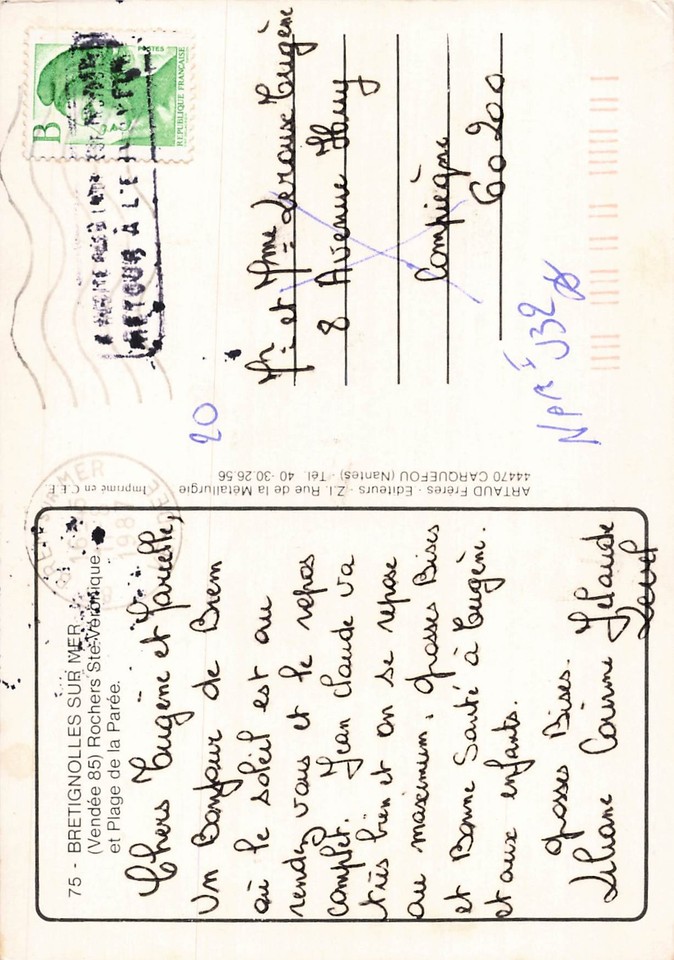 75 - BRETIGNOLLES SUR MER
(Vendée 85) Rochers Ste-Véronique
et Plage de la Parée.
Chers Eugène et
Un Bonjour de Brem
où le soleil est au
rendez vous et le repos
complet. Jean Claude va
très bien et on se repose
au maximum. grosses Bises
et Bonne Santé à Eugène.
et aux enfants.
grosses Bises.
Liliane Corinne
ARTAUD Frères - Editeurs - Z.I. Rue de la Métallurgie
44470 CARQUEFOU (Nantes) - Tél. 40 -30.26.56
Imprimé en C.E.E.
B
POSTES
REPUBLIQUE FRANÇAISE
RETOUR À L'E
BREM S/MER
16
1987
VENDEE
20
Mr et Mme Leroux Eugène
8 Avenue Huy
Compiègne
60200